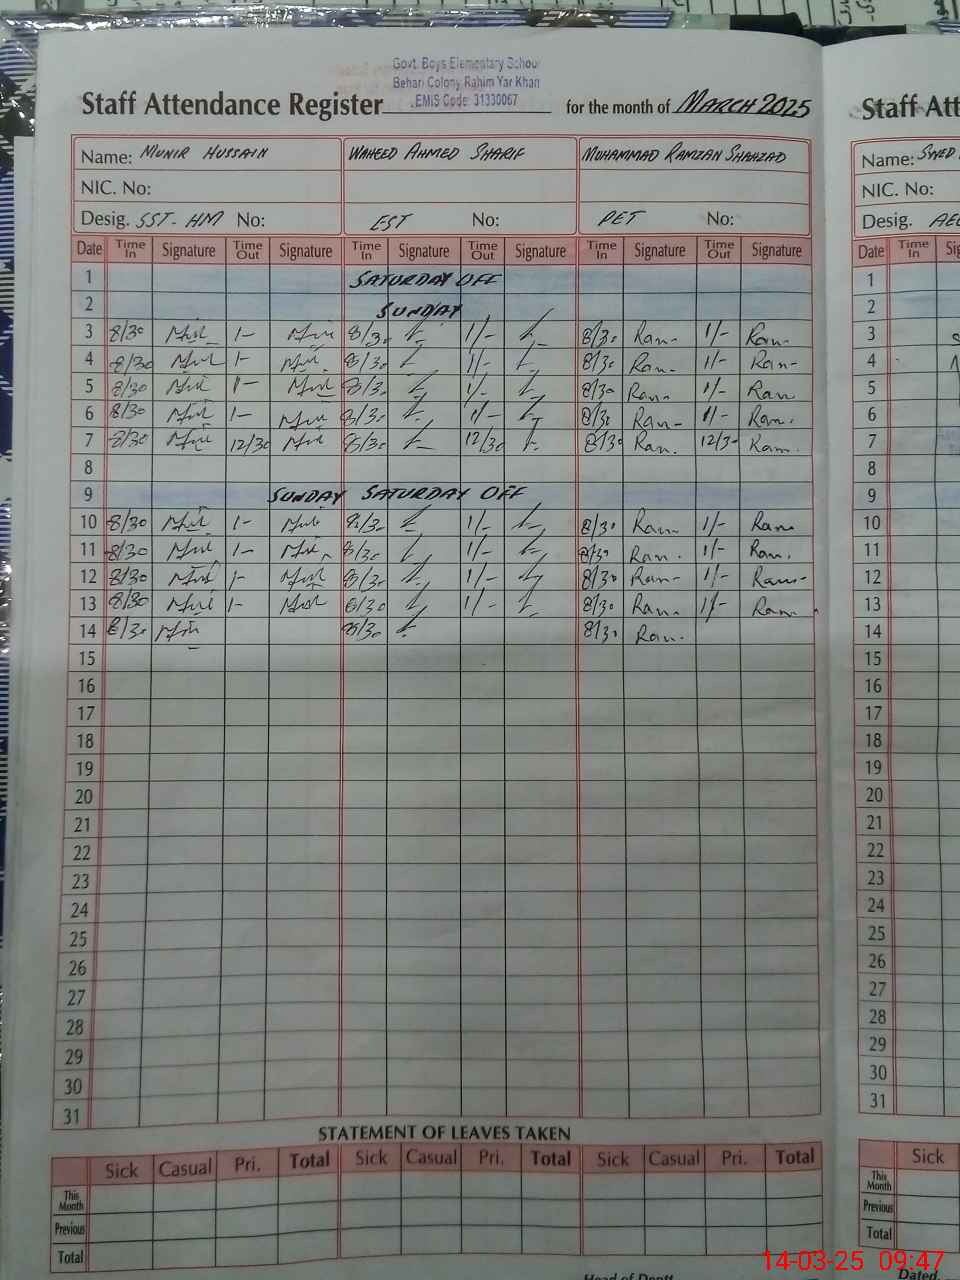 Govt. Boys Elementary School
Behari Colony Rahim Yar Khan
EMIS Code: 31330067
Staff Attendance Register for the month of MARCH 2025
Name: MUNIR HUSSAIN WAHEED AHMED SHARIF MUHAMMAD RAMZAN SHAHZAD
NIC. No:
Desig. SST-HM No: EST No: PET No:
Date Time In Signature Time Out Signature Time In Signature Time Out Signature Time In Signature Time Out Signature
1 SATURDAY OFF
2 SUNDAY
3 8/30 1- 8/30 1/- 8/30 Ram- 1/- Ram-
4 8/30 1- 8/30 1/- 8/30 Ram- 1/- Ram-
5 8/30 1- 8/30 1/- 8/30 Ram- 1/- Ram
6 8/30 1- 8/30 1/- 8/30 Ram- 1/- Ram.
7 8/30 12/30 8/30 12/30 8/30 Ram. 12/30 Ram.
8
9 SUNDAY SATURDAY OFF
10 8/30 1- 8/30 1/- 8/30 Ram- 1/- Ram
11 8/30 1- 8/30 1/- 8/30 Ram. 1/- Ram.
12 8/30 1- 8/30 1/- 8/30 Ram- 1/- Ram-
13 8/30 1- 8/30 1/- 8/30 Ram. 1/- Ram.
14 8/30 8/30 8/30 Ram.
15
16
17
18
19
20
21
22
23
24
25
26
27
28
29
30
31
STATEMENT OF LEAVES TAKEN
Sick Casual Pri. Total Sick Casual Pri. Total Sick Casual Pri. Total
This Month
Previous
Total
Staff Att
Name:
NIC. No:
Desig.
Date Time In
1
2
3
4
5
6
7
8
9
10
11
12
13
14
15
16
17
18
19
20
21
22
23
24
25
26
27
28
29
30
31
Sick
This Month
Previous
Total
Head of Deptt
Dated.
14-03-25 09:47